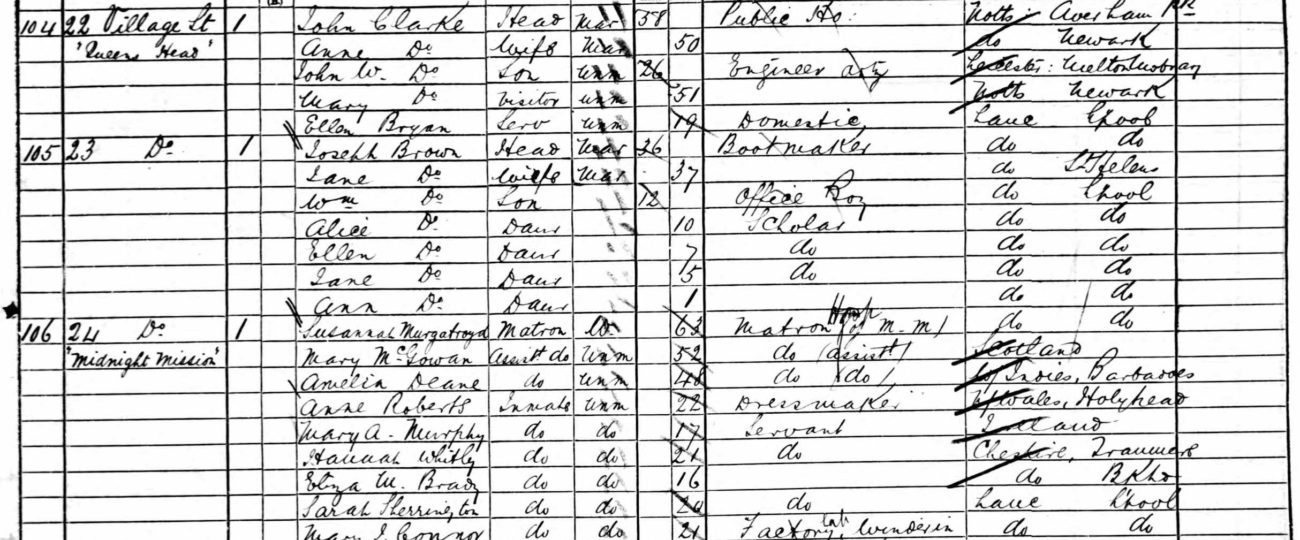 104 22 Village St 1 John Clarke Head Mar 58 Public Ho: Notts: Averham
"Queens Head" Anne Do Wife Mar 50 do Newark
John W. Do Son Unm 26 Engineer Leicester: Melton Mobray
Mary Do Visitor Unm 51 Notts Newark
Ellen Bryan Serv Unm 19 Domestic Lanc L'pool
105 23 Do 1 Joseph Brown Head Mar 36 Bootmaker do do
Jane Do Wife Mar 37 do St Helens
Wm Do Son 12 Office Boy do L'pool
Alice Do Daur 10 Scholar do do
Ellen Do Daur 7 do do do
Jane Do Daur 5 do do do
Ann Do Daur 1 do do
106 24 Do 1 Susannah Murgatroyd Matron W. 63 Matron (of M.M) do do
"Midnight Mission" Mary McGowan Assist do Unm 52 do (assist) Scotland
Amelia Deane do Unm 48 do (do) W. Indies, Barbadoes
Anne Roberts Inmate Unm 22 Dressmaker N. Wales, Holyhead
Mary A. Murphy do do 17 Servant Ireland
Hannah Whitley do do 21 do Cheshire, Tranmere
Eliza M. Brady do do 16 do B.Khd
Sarah Sherrington do do 20 do Lanc L'pool
Mary J. Connor do do 21 Factory lab, do do